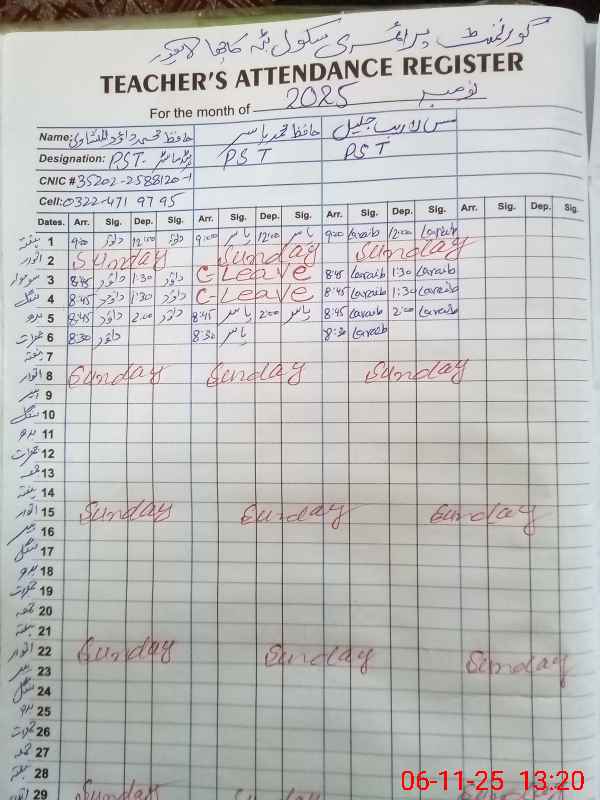 گورنمنٹ پرائمری سکول
TEACHER'S ATTENDANCE REGISTER
For the month of نومبر 2025
Name: حافظ محمد داؤد حافظ محمد یاسر مس لاریب جلیل
Designation: PST- PST PST
CNIC # 35202-2588120-1
Cell: 0322-471 97 95
Dates. Arr. Sig. Dep. Sig. Arr. Sig. Dep. Sig. Arr. Sig. Dep. Sig. Arr. Sig. Dep. Sig.
ہفتہ 1 9:00 داؤد 12:00 داؤد 9:00 یاسر 12:00 یاسر 9:00 Laraib 12:00 Laraib
اتوار 2 Sunday Sunday Sunday
سوموار 3 8:45 داؤد 1:30 داؤد C-Leave 8:45 Laraib 1:30 Laraib
منگل 4 8:45 داؤد 1:30 داؤد C-Leave 8:45 Laraib 1:30 Laraib
بدھ 5 8:45 داؤد 2:00 داؤد 8:45 یاسر 2:00 یاسر 8:45 Laraib 2:00 Laraib
جمعرات 6 8:30 داؤد 8:30 یاسر 8:30 Laraib
ہفتہ 7
اتوار 8 Sunday Sunday Sunday
پیر 9
منگل 10
بدھ 11
جمعرات 12
جمعہ 13
ہفتہ 14
اتوار 15 Sunday Sunday Sunday
پیر 16
منگل 17
بدھ 18
جمعرات 19
جمعہ 20
ہفتہ 21
اتوار 22 Sunday Sunday Sunday
پیر 23
منگل 24
بدھ 25
جمعرات 26
جمعہ 27
ہفتہ 28
اتوار 29 Sunday Sunday
06-11-25 13:20